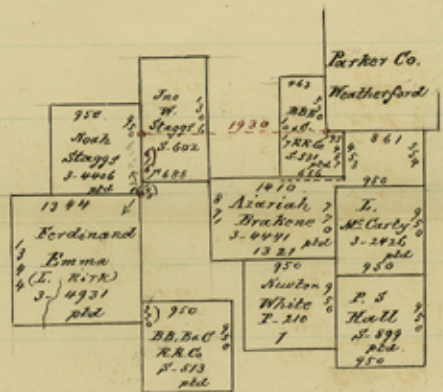 Parker Co.
Weatherford
Jno
W.
Staggs
S-602
688
1930
463
BBB
& C.
RR Co
S-531
ptd
656
861
950
Noah
Staggs
S-4406
ptd
1344
Ferdinand
Emma
(L. Kirk)
S-4931
ptd
1344
1410
Azariah
Brakene
S-4441
1321
ptd
871
770
950
L.
McCarty
S-2426
ptd
950
950
Newton
White
P-210
7
950
P. S
Hall
S-899
ptd
950
950
BB.B&C
RR.Co
S-513
ptd
950